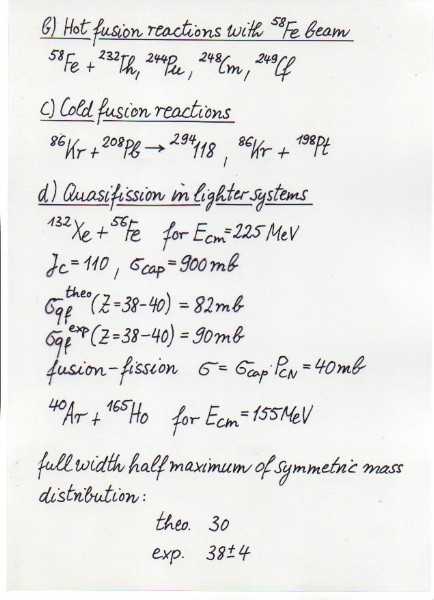 b) Hot fusion reactions with ⁵⁸Fe beam
⁵⁸Fe + ²³²Th, ²⁴⁴Pu, ²⁴⁸Cm, ²⁴⁹Cf
c) Cold fusion reactions
⁸⁶Kr + ²⁰⁸Pb → ²⁹⁴118, ⁸⁶Kr + ¹⁹⁸Pt
d) Quasifission in lighter systems
¹³²Xe + ⁵⁶Fe for Ecm = 225 MeV
Jc = 110, σcap = 900 mb
σqf^theo (Z = 38-40) = 82 mb
σqf^exp (Z = 38-40) = 90 mb
fusion-fission σ = σcap·PCN = 40 mb
⁴⁰Ar + ¹⁶⁵Ho for Ecm = 155 MeV
full width half maximum of symmetric mass
distribution:
theo. 30
exp. 38±4